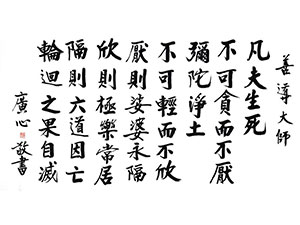 善導大師
凡夫生死
不可貪而不厭
彌陀淨土
不可輕而不欣
厭則娑婆永隔
欣則極樂常居
隔則六道因亡
輪迴之果自滅
廣心敬書